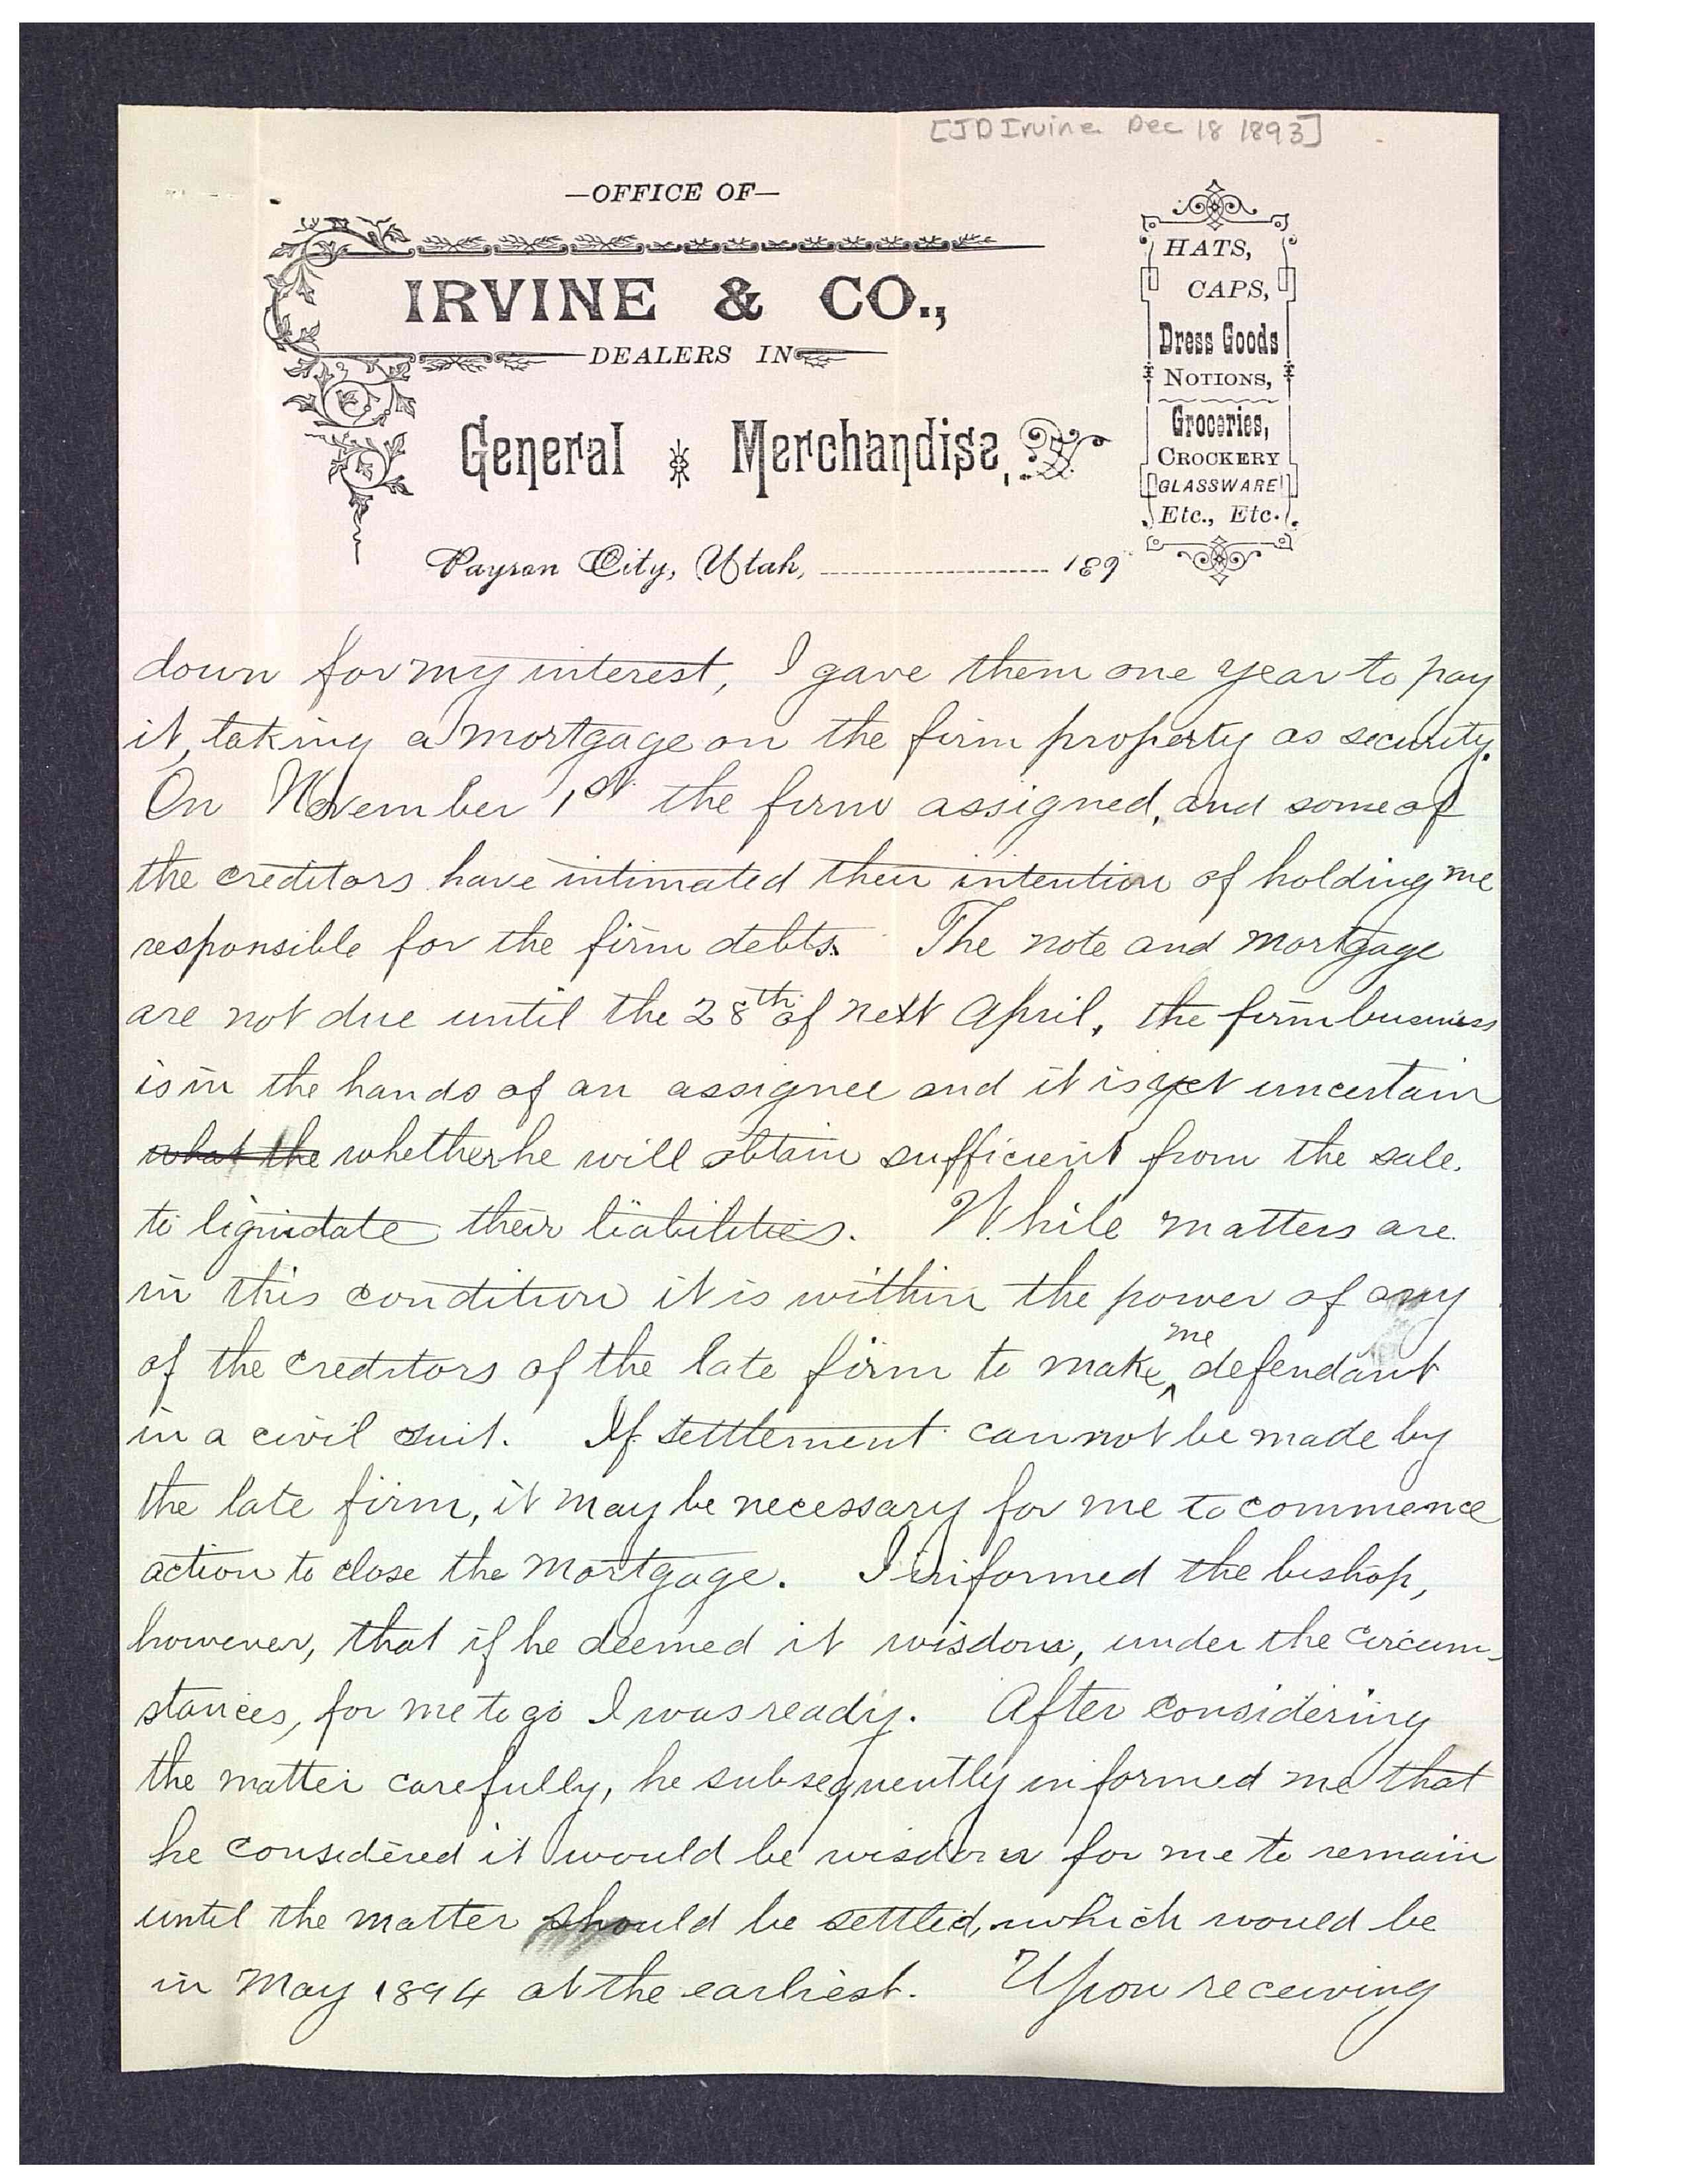 [JD Irvine Dec 18 1893]
—OFFICE OF—
IRVINE & CO.,
DEALERS IN
General Merchandise,
HATS,
CAPS,
Dress Goods
NOTIONS,
Groceries,
CROCKERY
GLASSWARE
Etc., Etc.
Payson City, Utah, 189
down for my interest, I gave them one year to pay
it, taking a mortgage on the firm property as security.
On November 1st the firm assigned, and some of
the creditors have intimated their intention of holding me
responsible for the firm debts. The note and mortgage
are not due until the 28th of next April, the firm business
is in the hands of an assignee and it is yet uncertain
what the whether he will obtain sufficient from the sale
to liquidate their liabilities. While matters are
in this condition it is within the power of any
of the creditors of the late firm to make me defendant
in a civil suit. If settlement cannot be made by
the late firm, it may be necessary for me to commence
action to close the mortgage. I informed the bishop,
however, that if he deemed it wisdom, under the circum-
stances, for me to go I was ready. After considering
the matter carefully, he subsequently informed me that
he considered it would be wisdom for me to remain
until the matter should be settled, which would be
in May 1894 at the earliest. Upon receiving